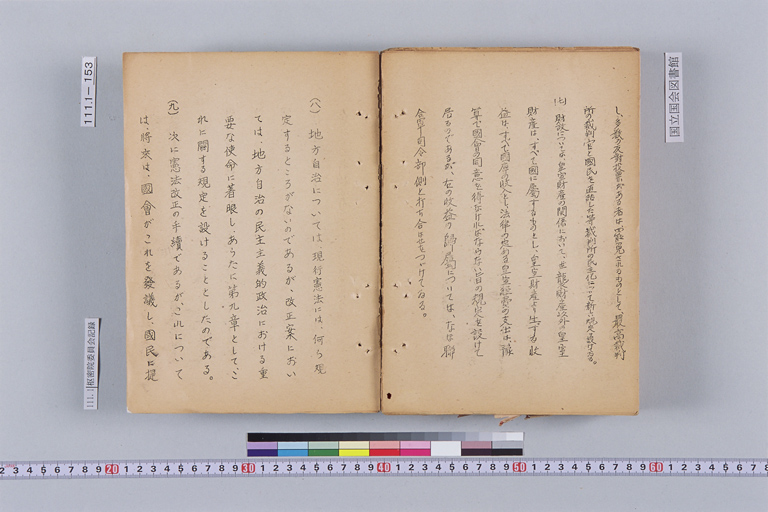 し、多数の反対投票がある者は罷免されるものとして、最高裁判
所の裁判官と国民を直結した等裁判所の民主化について新に規定を設けてゐる。
(七) 財政については、皇室財産の関係において、世襲財産以外の皇室
財産は、すべて國に屬するものとし、皇室財産より生ずる收
益は、すべて國庫の收入とし、法律の定める皇室経費の支出は、豫
算で國會の同意を得なければならない旨の規定を設けて
居るのであるが、右の收益の歸屬については、なほ聯
合軍司令部側と打ち合せをつづけてゐる。
(八) 地方自治については、現行憲法には、何ら規
定するところがないのであるが、改正案におい
ては、地方自治の民主主義的政治における重
要な使命に着眼し、あらたに第九章として、こ
れに関する規定を設けることとしたのである。
(九) 次に憲法改正の手續であるが、これについて
は、將来は、國會がこれを發議し、國民に提
111.1―153
国立国会図書館
111.1 枢密院委員会記録